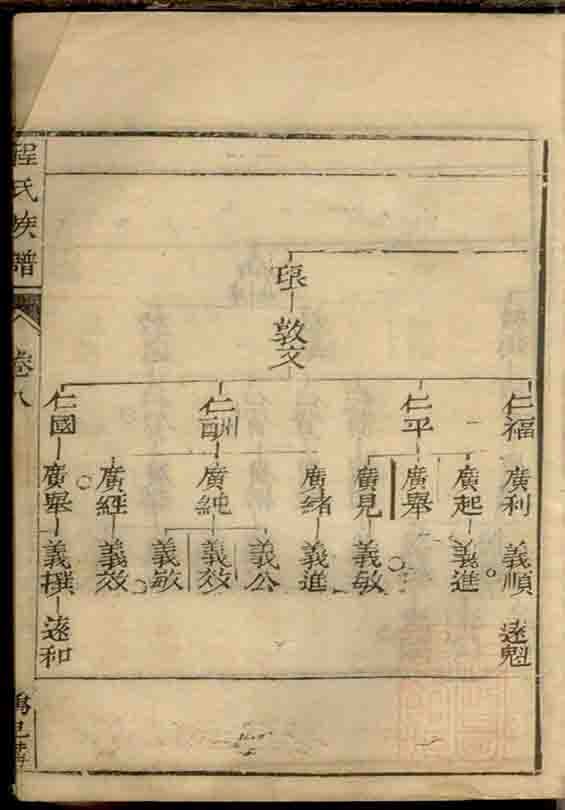 琅
敦文
仁福 仁平 仁酬 仁國
廣利 廣起 廣舉 廣見 廣緒 廣純 廣經 廣舉
義順 義進 義敏 義進 義公 義效 義敏 義效 義撰
遠魁 遠和
程氏族譜
卷八